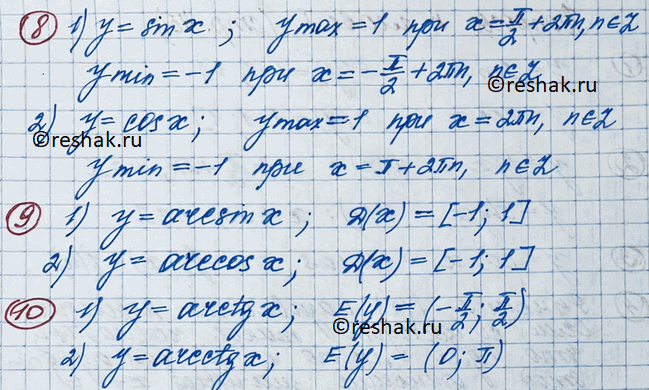 8 1) y = sin x ; y max = 1 при x = π/2 + 2πn, n∈Z
y min = -1 при x = -π/2 + 2πn, n∈Z
©reshak.ru
2) y = cos x ; y max = 1 при x = 2πn, n∈Z
©reshak.ru
y min = -1 при x = π + 2πn, n∈Z
9 1) y = arcsin x ; D(x) = [-1; 1]
2) y = arccos x ; D(x) = [-1; 1]
10 1) y = arctg x ; E(y) = (-π/2; π/2)
©reshak.ru
2) y = arcctg x ; E(y) = (0; π)